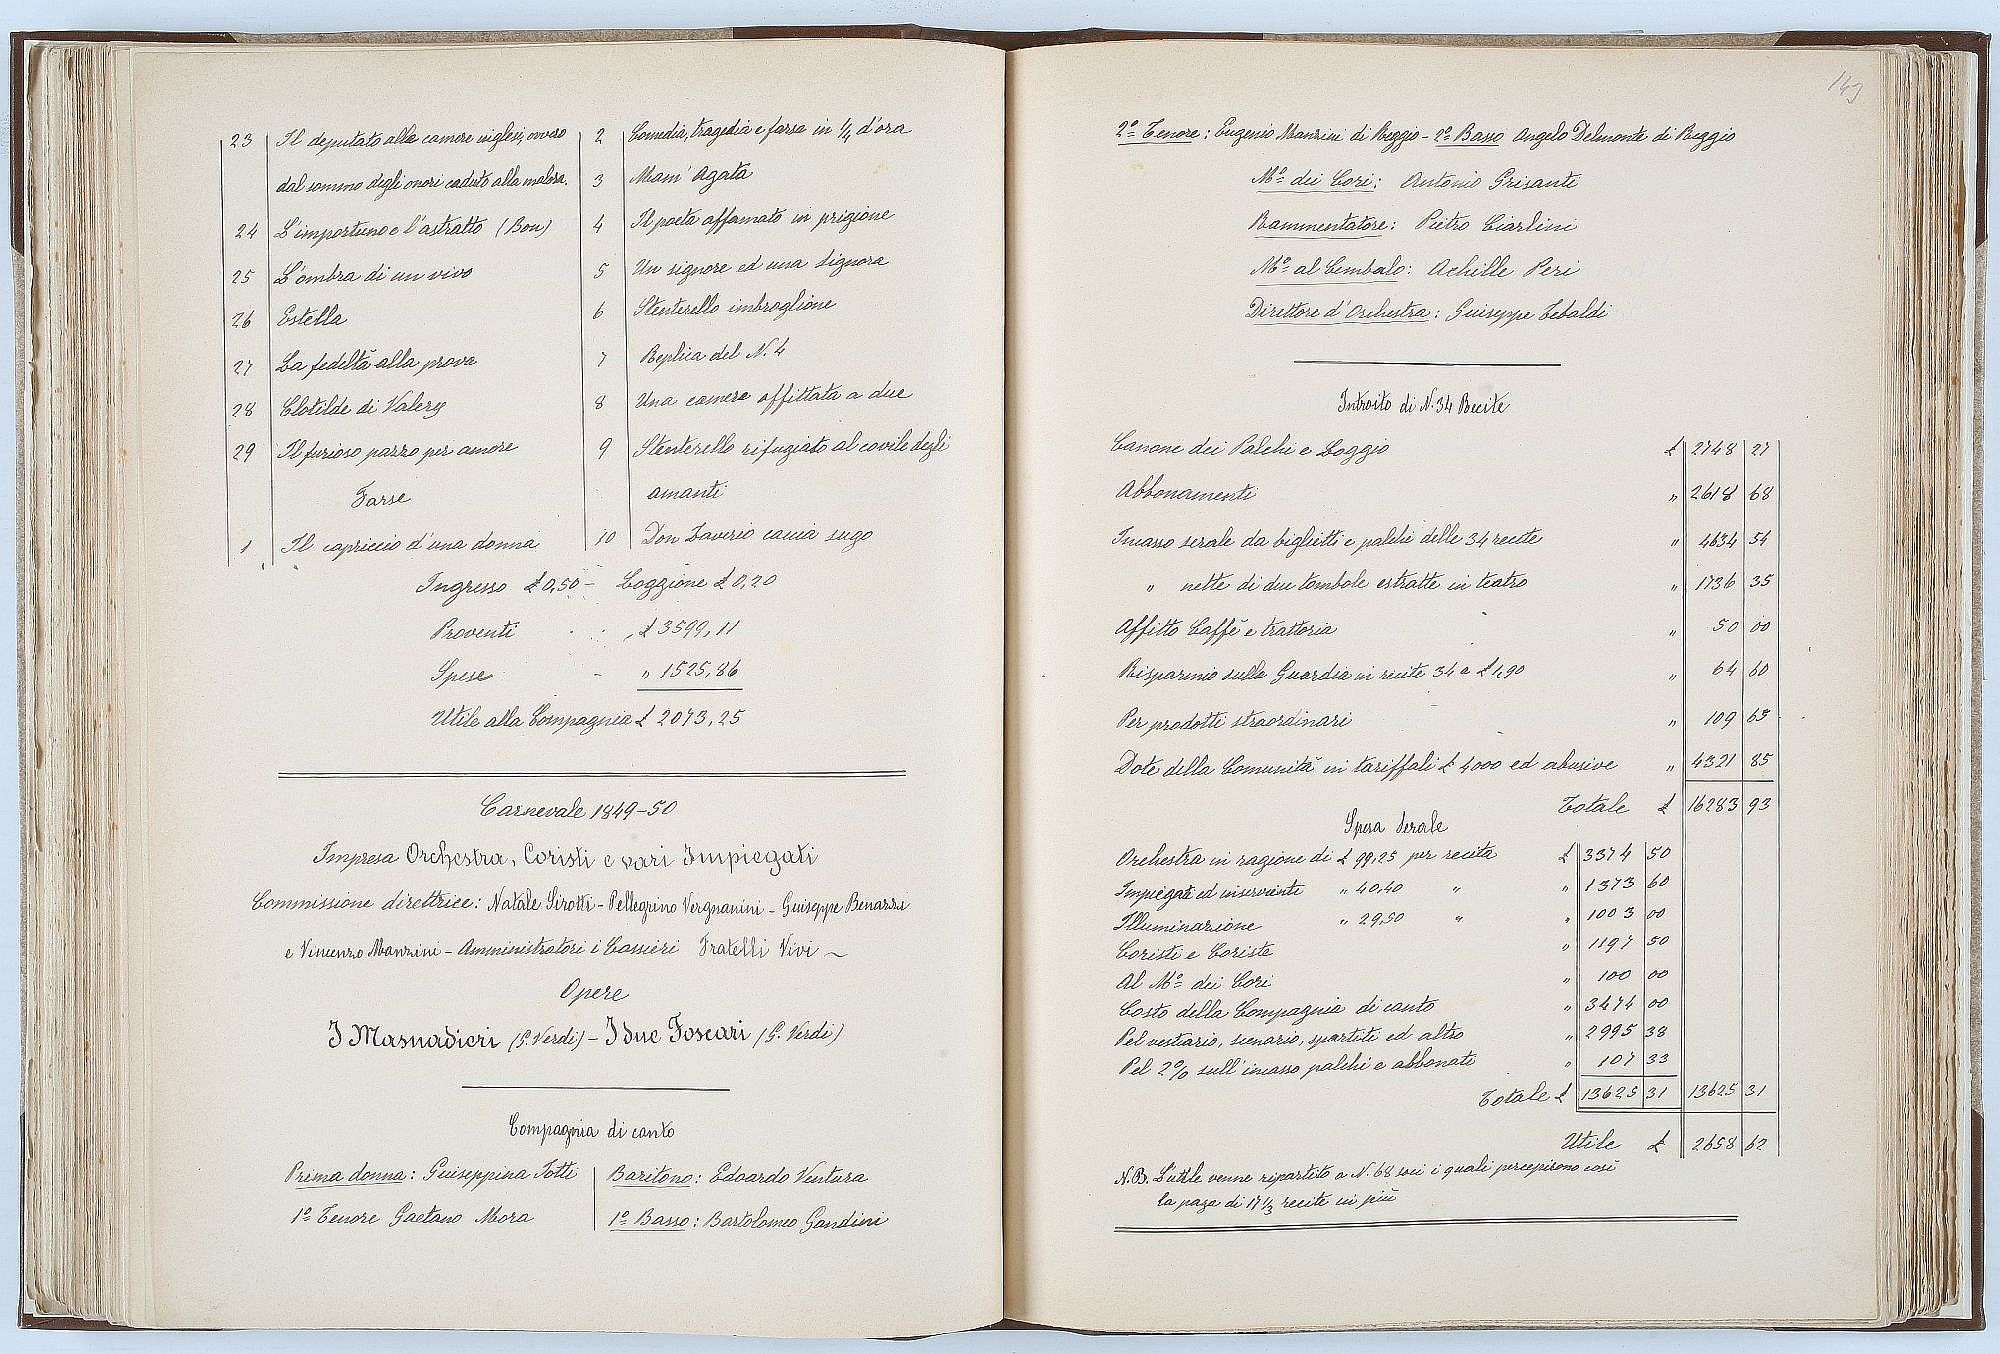 23 Il deputato alla camere inglesi, ovvero
dal sommo degli onori caduto alla malora.
24 L'importuno e l'astratto (Bon)
25 L'ombra di un vivo
26 Estella
27 La fedeltà alla prova
28 Clotilde di Valery
29 Il furioso pazzo per amore
Farse
1 Il capriccio d'una donna
2 Comedia, tragedia e farsa in 1/4 d'ora
3 Mam' Agata
4 Il poeta affamato in prigione
5 Un signore ed una signora
6 Stenterello imbroglione
7 Replica del N. 4
8 Una camera affittata a due
9 Stenterello rifugiato al covile degli
amanti
10 Don Saverio caccia sugo
Ingresso £ 0,50 - Loggione £ 0,20
Proventi £ 3599,11
Spese " 1525,86
Utile alla Compagnia £ 2073,25
Carnevale 1849-50
Impresa Orchestra, Coristi e vari Impiegati
Commissione direttrice: Natale Sirotti - Pellegrino Vergnanini - Guiseppe Benazzi
e Vincenzo Manzini - Amministratori i Cassieri Fratelli Vivi ~
Opere
I Masnadieri (G. Verdi) - I due Foscari (G. Verdi)
Compagnia di canto
Prima donna: Guiseppina Totti
1° Tenore Gaetano Mora
Baritono: Edoardo Ventura
1° Basso: Bartolomeo Gandini
149
2° Tenore: Eugenio Manzini di Reggio - 2° Basso Angelo Delmonte di Reggio
M° dei Cori: Antonio Grisanti
Rammentatore: Pietro Ciarlini
M° al Cembalo: Achille Peri
Direttore d'Orchestra: Guiseppe Tebaldi
Introito di N. 34 Recite
Canone dei Palchi e Loggio £ 2748 27
Abbonamenti " 2618 68
Incasso serale da biglietti e palchi delle 34 recite " 4634 54
" nette di due tombole estratte in teatro " 1736 35
Affitto Caffè e trattoria " 50 00
Risparmio sulla Guardia in recite 34 a £ 1,90 " 64 60
Per prodotti straordinari " 109 65
Dote della Comunità in tariffali £ 4000 ed abusive " 4321 85
Totale £ 16283 93
Spesa Serale
Orchestra in ragione di £ 99,25 per recita £ 3374 50
Impiegati ed inservienti " 40,40 " " 1373 60
Illuminazione " 29,50 " " 1003 00
Coristi e Coriste " 1197 50
Al M° dei Cori " 100 00
Costo della Compagnia di canto " 3474 00
Pel vestiario, scenario, spartiti ed altro " 2995 38
Pel 2% sull'incasso palchi e abbonati " 107 33
Totale £ 13625 31 13625 31
Utile £ 2658 62
N.B. L'utile venne ripartito a N. 68 soci i quali percepirono così
la paga di 17 1/3 recite in più